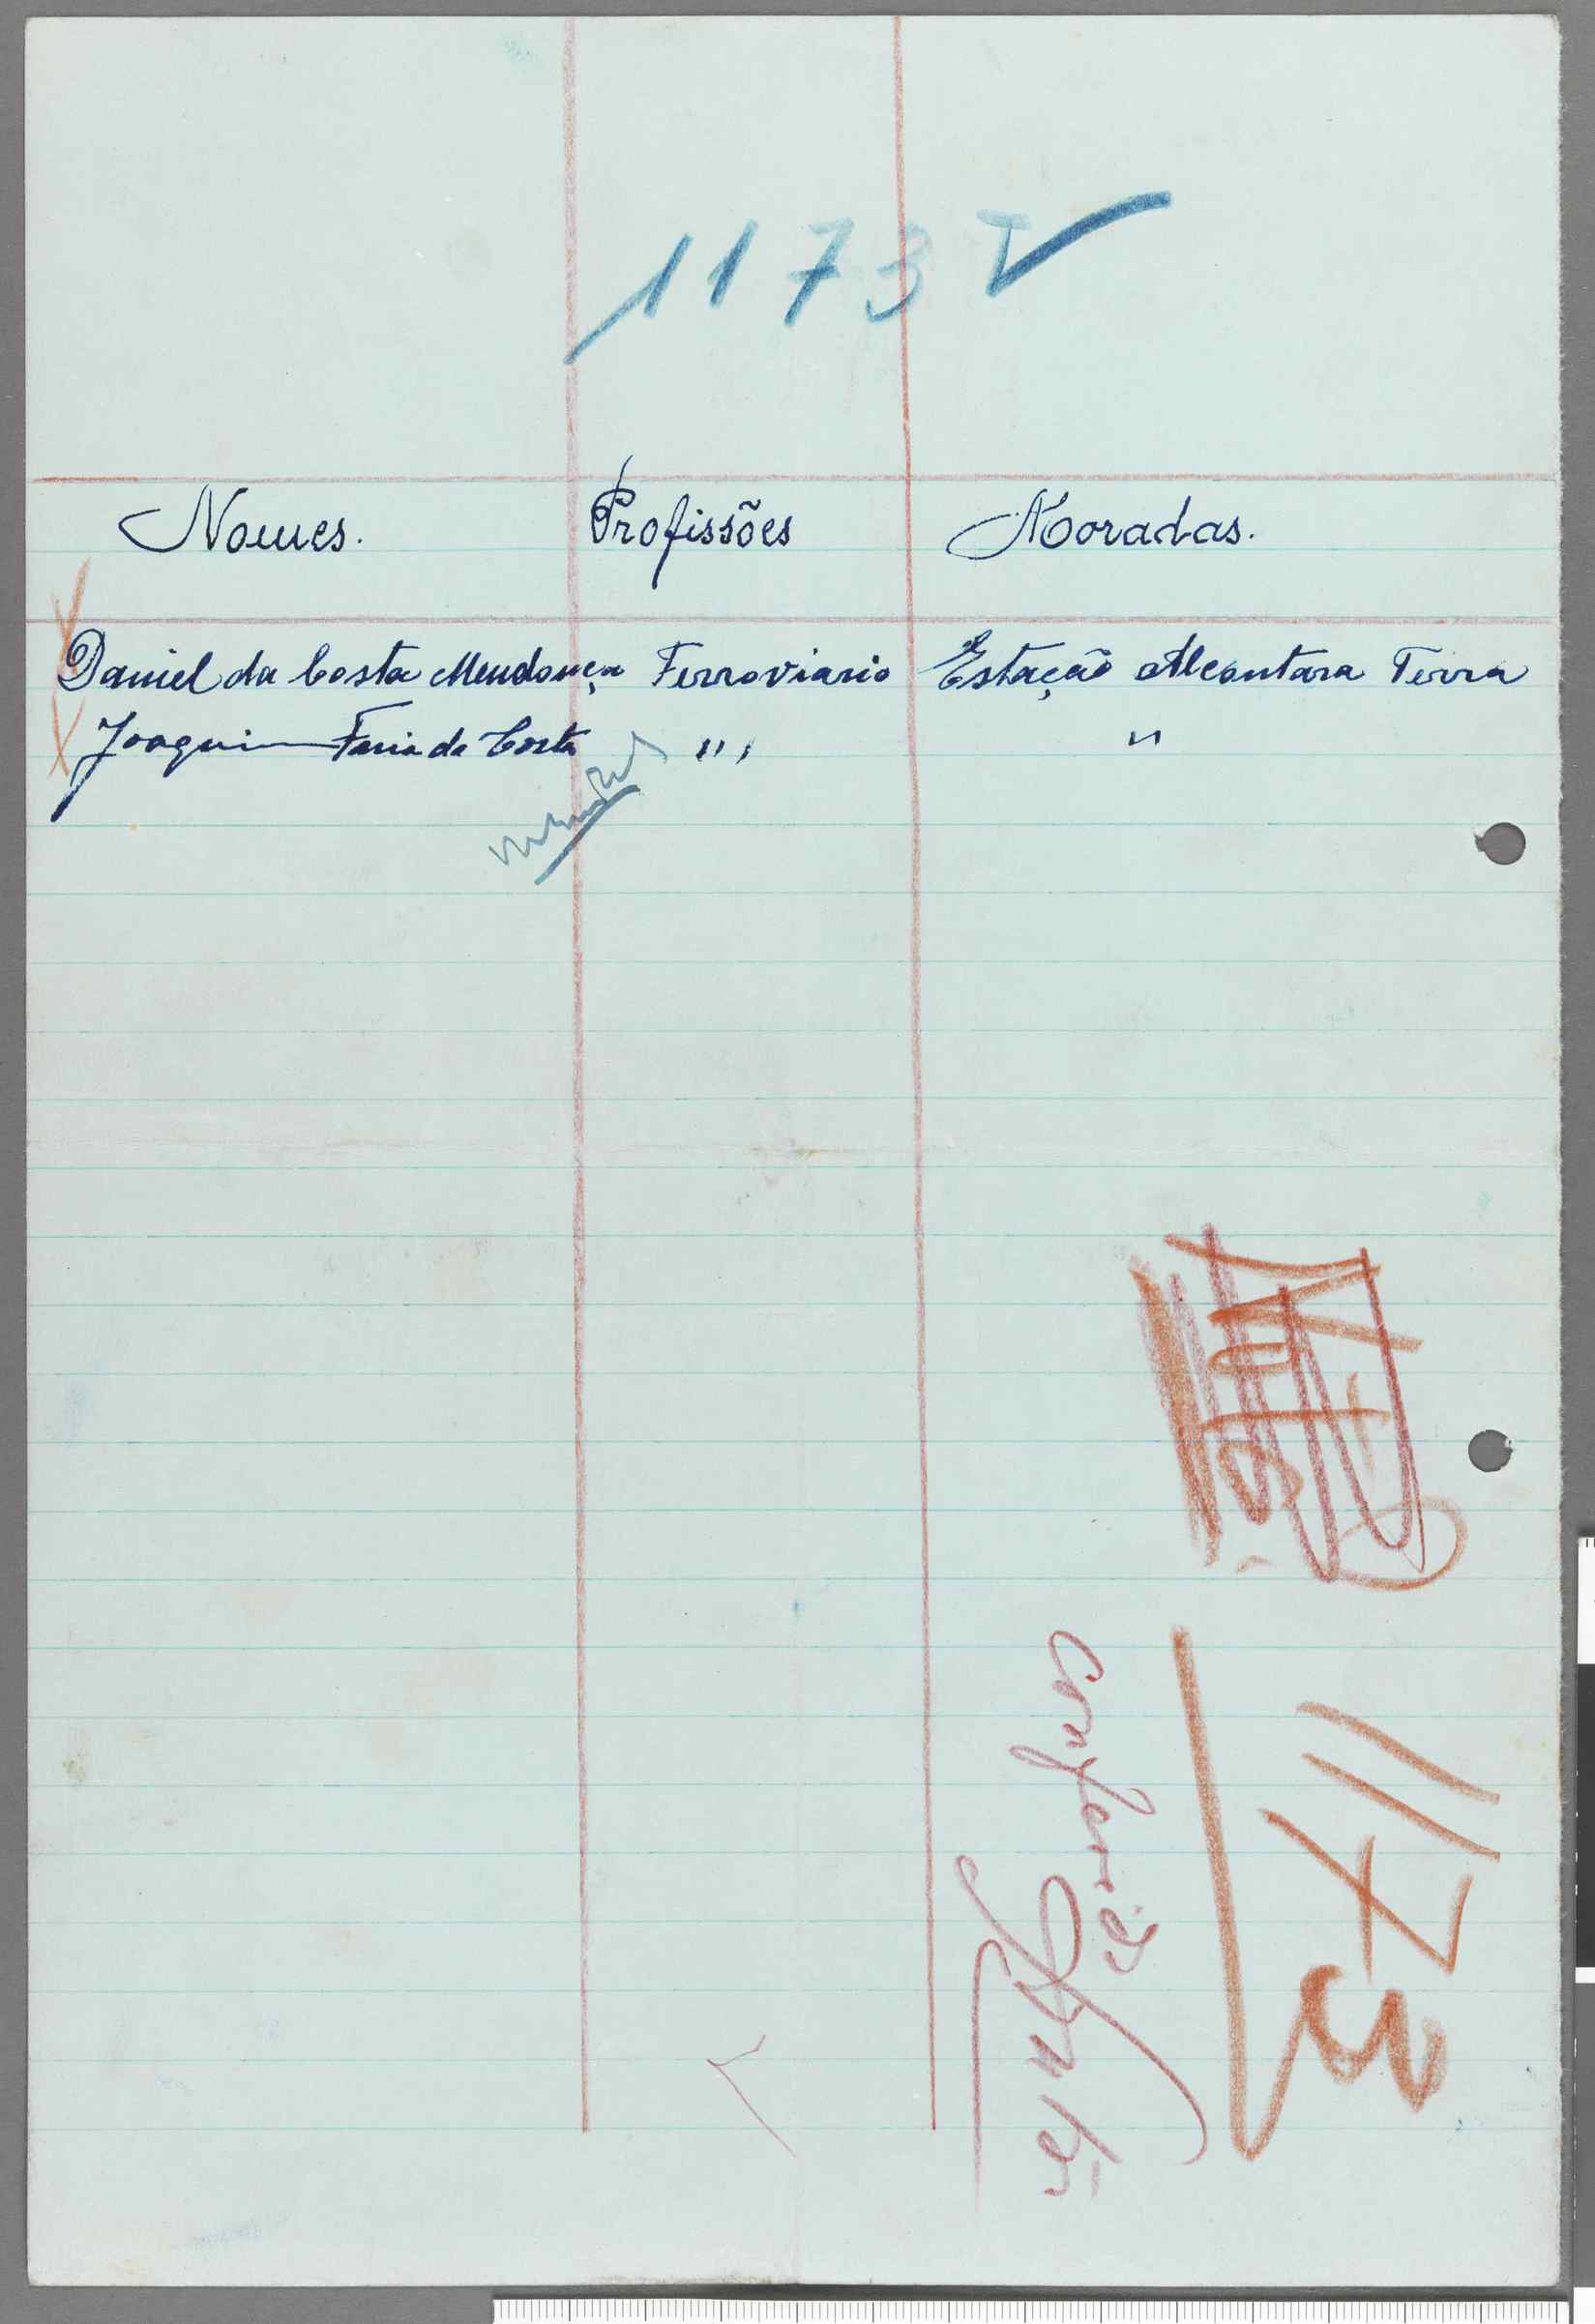 1173
Nomes. Profissões Moradas.
Daniel da Costa Mendonça Ferroviario Estação Alcantara Terra
Joaquim Faria da Costa " , "
1173
Conferido